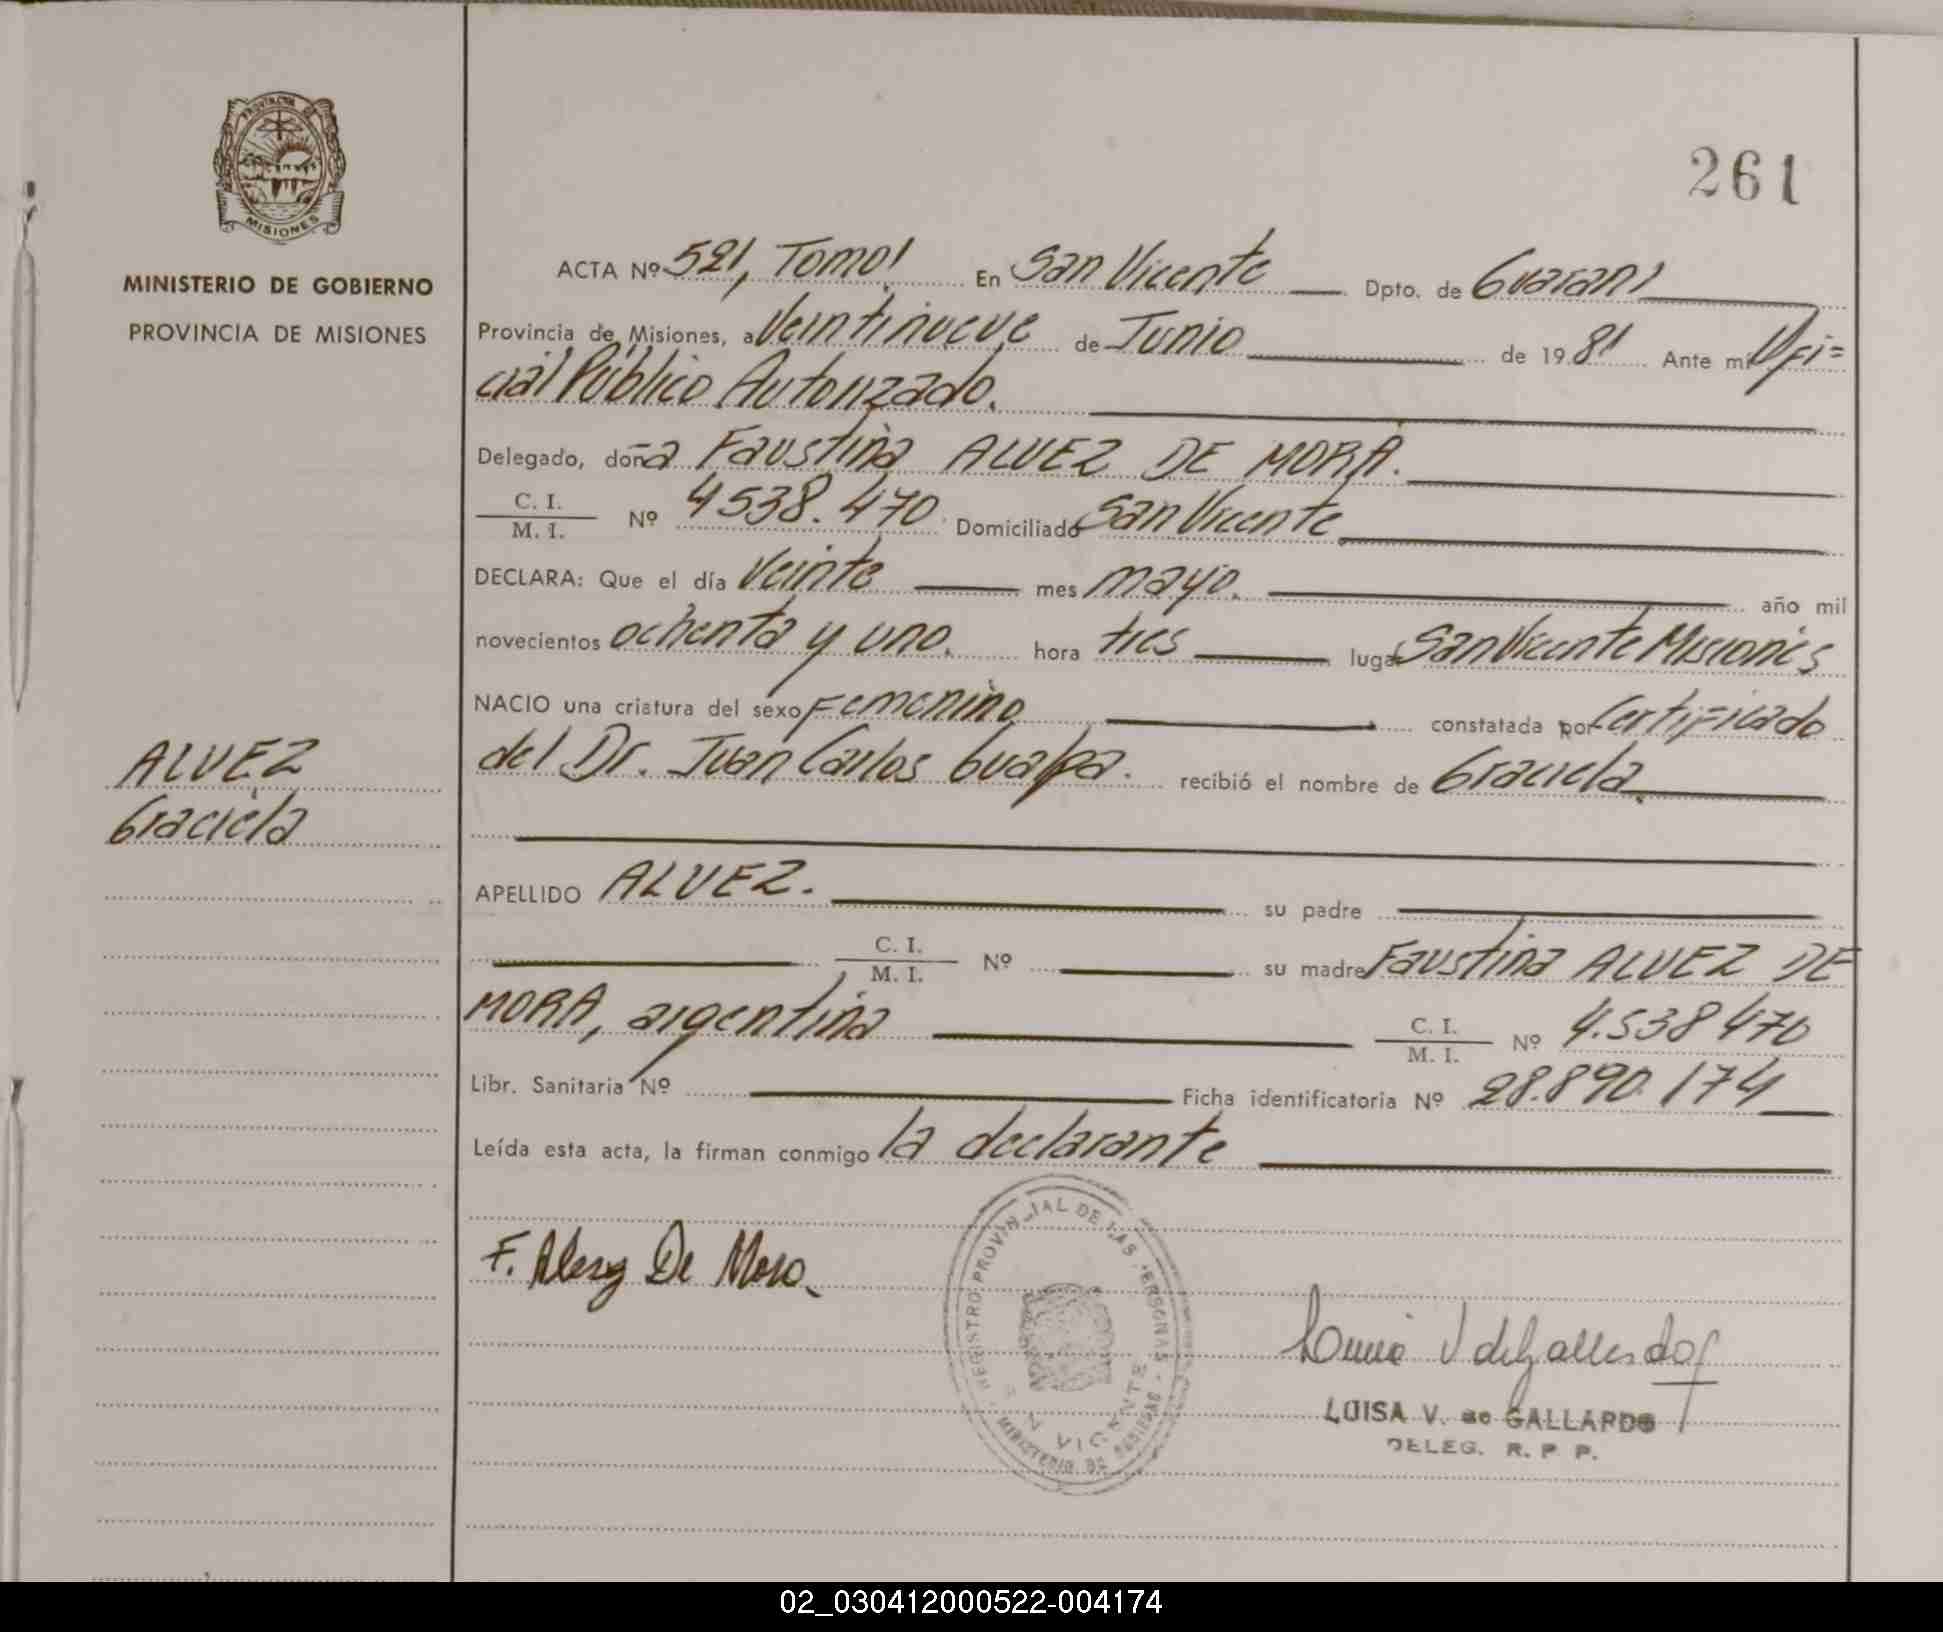 PROVINCIA DE
MISIONES
MINISTERIO DE GOBIERNO
PROVINCIA DE MISIONES
ALVEZ
Graciela
261
ACTA Nº 521, Tomo I En San Vicente Dpto. de Guaraní
Provincia de Misiones, a Veintinueve de Junio de 1981 Ante mí Ofi=
cial Público Autorizado.
Delegado, doña Faustina ALVEZ DE MORA.
C. I.
M. I. Nº 4538.470 Domiciliado San Vicente
DECLARA: Que el día Veinte mes mayo. año mil
novecientos ochenta y uno. hora tres lugar San Vicente Misiones
NACIO una criatura del sexo Femenino constatada por Certificado
del Dr. Juan Carlos Gualpa. recibió el nombre de Graciela.
APELLIDO ALVEZ. su padre
C. I.
M. I. Nº su madre Faustina ALVEZ DE
MORA, argentina C. I.
M. I. Nº 4.538470
Libr. Sanitaria Nº Ficha identificatoria Nº 28.890.174
Leída esta acta, la firman conmigo la declarante
F. Alvez De Mora.
REGISTRO PROVINCIAL DE LAS PERSONAS
VICENTE
MINISTERIO DE
LUISA V. de GALLARDO
DELEG. R. P. P.
02_030412000522-004174